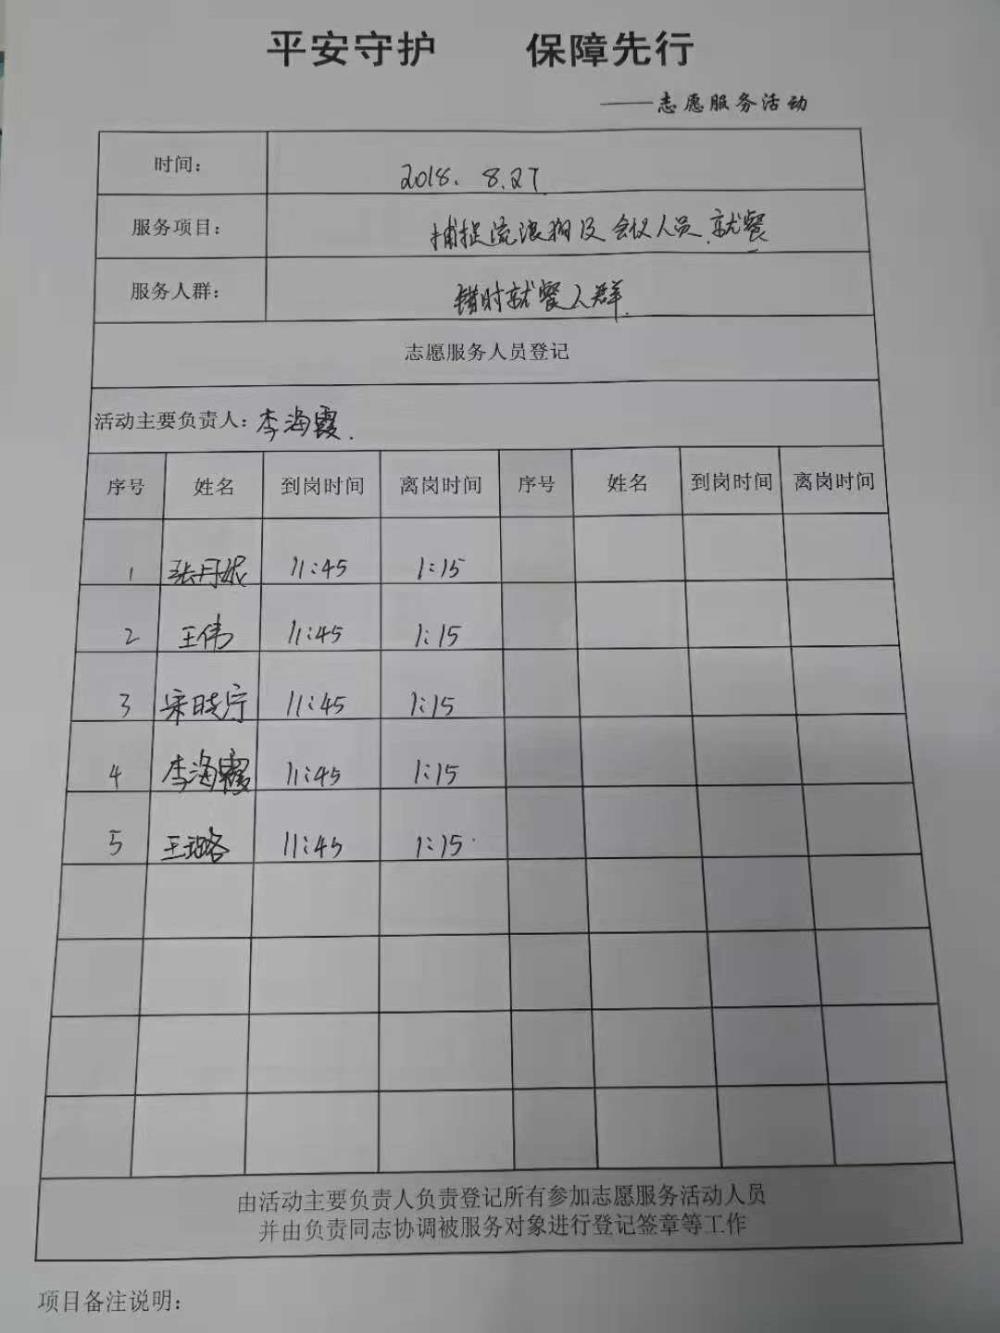 平安守护 保障先行
——志愿服务活动
时间： 2018. 8.27.
服务项目： 捕捉流浪狗及会议人员就餐
服务人群： 错时就餐人群.
志愿服务人员登记
活动主要负责人：李海霞.
序号 姓名 到岗时间 离岗时间 序号 姓名 到岗时间 离岗时间
1 张丹妮 11:45 1:15
2 王伟 11:45 1:15
3 宋晓宁 11:45 1:15
4 李海霞 11:45 1:15
5 王璐 11:45 1:15
由活动主要负责人负责登记所有参加志愿服务活动人员
并由负责同志协调被服务对象进行登记签章等工作
项目备注说明：